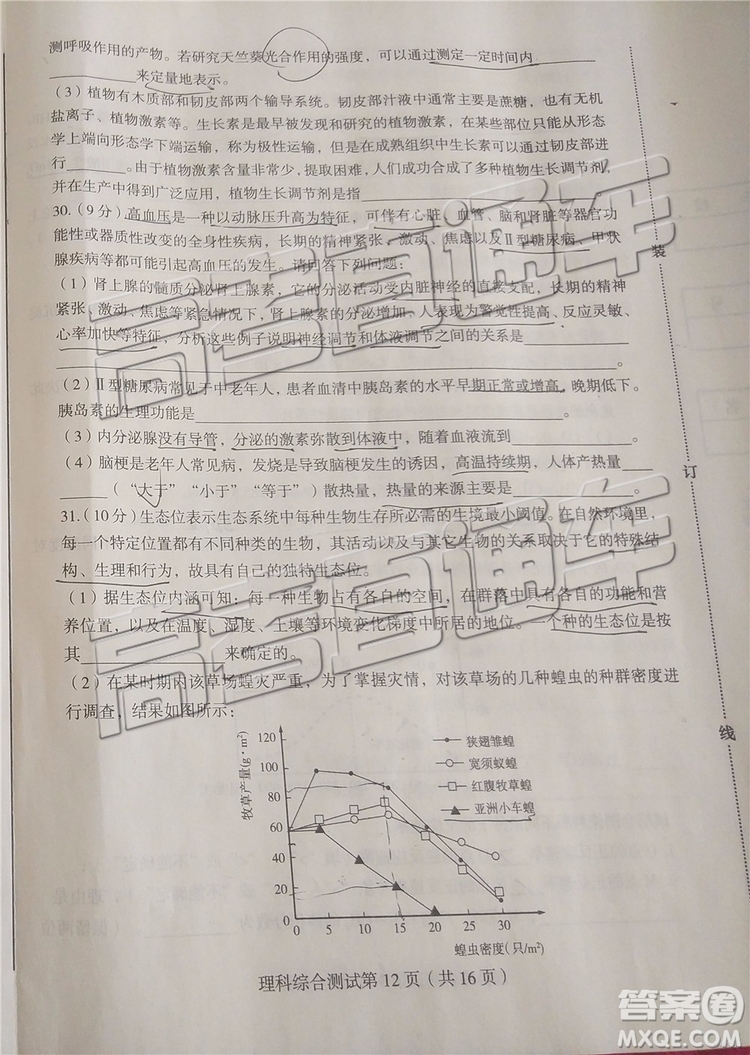 测呼吸作用的产物。若研究天竺葵光合作用的强度，可以通过测定一定时间内
来定量地表示。
（3）植物有木质部和韧皮部两个输导系统。韧皮部汁液中通常主要是蔗糖，也有无机
盐离子、植物激素等。生长素是最早被发现和研究的植物激素，在某些部位只能从形态
学上端向形态学下端运输，称为极性运输，但是在成熟组织中生长素可以通过韧皮部进
行______。由于植物激素含量非常少，提取困难，人们成功合成了多种植物生长调节剂，
并在生产中得到广泛应用，植物生长调节剂是指______
30.（9分）高血压是一种以动脉压升高为特征，可伴有心脏、血管、脑和肾脏等器官功
能性或器质性改变的全身性疾病，长期的精神紧张、激动、焦虑以及Ⅱ型糖尿病、甲状
腺疾病等都可能引起高血压的发生。请回答下列问题：
（1）肾上腺的髓质分泌肾上腺素，它的分泌活动受内脏神经的直接支配，长期的精神
紧张、激动、焦虑等紧急情况下，肾上腺素的分泌增加，人表现为警觉性提高、反应灵敏、
心率加快等特征，分析这些例子说明神经调节和体液调节之间的关系是______
______。
（2）Ⅱ型糖尿病常见于中老年人，患者血清中胰岛素的水平早期正常或增高，晚期低下。
胰岛素的生理功能是______。
（3）内分泌腺没有导管，分泌的激素弥散到体液中，随着血液流到______。
（4）脑梗是老年人常见病，发烧是导致脑梗发作的诱因，高温持续期，人体产热量___
______（“大于”“小于”“等于”）散热量，热量的来源主要是______。
31.（10分）生态位表示生态系统中每种生物生存所必需的生境最小阈值。在自然环境里，
每一个特定位置都有不同种类的生物，其活动以及与其它生物的关系取决于它的特殊结
构、生理和行为，故具有自己的独特生态位。
（1）据生态位内涵可知：每一种生物占有各自的空间，在群落中具有各自的功能和营
养位置，以及在温度、湿度、土壤等环境变化梯度中所居的地位。一个种的生态位是按
其______来确定的。
（2）在某时期内该草场蝗灾严重，为了掌握灾情，对该草场的几种蝗虫的种群密度进
行调查，结果如图所示：
牧草产量(g·m²)
120
100
80
60
40
20
0
0 5 10 15 20 25 30
蝗虫密度(只/m²)
狭翅雏蝗
宽须蚁蝗
红腹牧草蝗
亚洲小车蝗
理科综合测试第12页（共16页）
装
订
线
高考直通车
高考直通车
答案圈
MXQE.COM